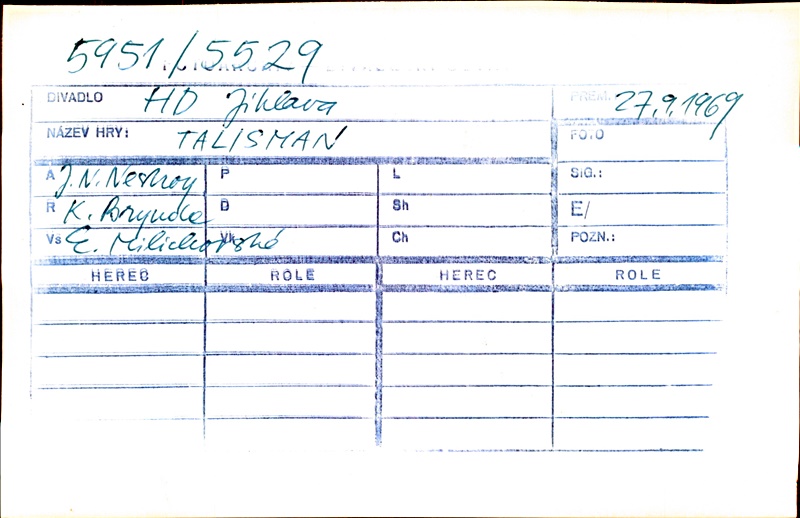 5951/5529
DIVADLO HD Jihlava PREM. 27.9.1969
NÁZEV HRY: TALISMAN FOTO
A J.N. Nestroy P L SIG.:
R K. Brynda D Sh E/
Vs E. Milichovská Ch POZN.:
HEREC ROLE HEREC ROLE